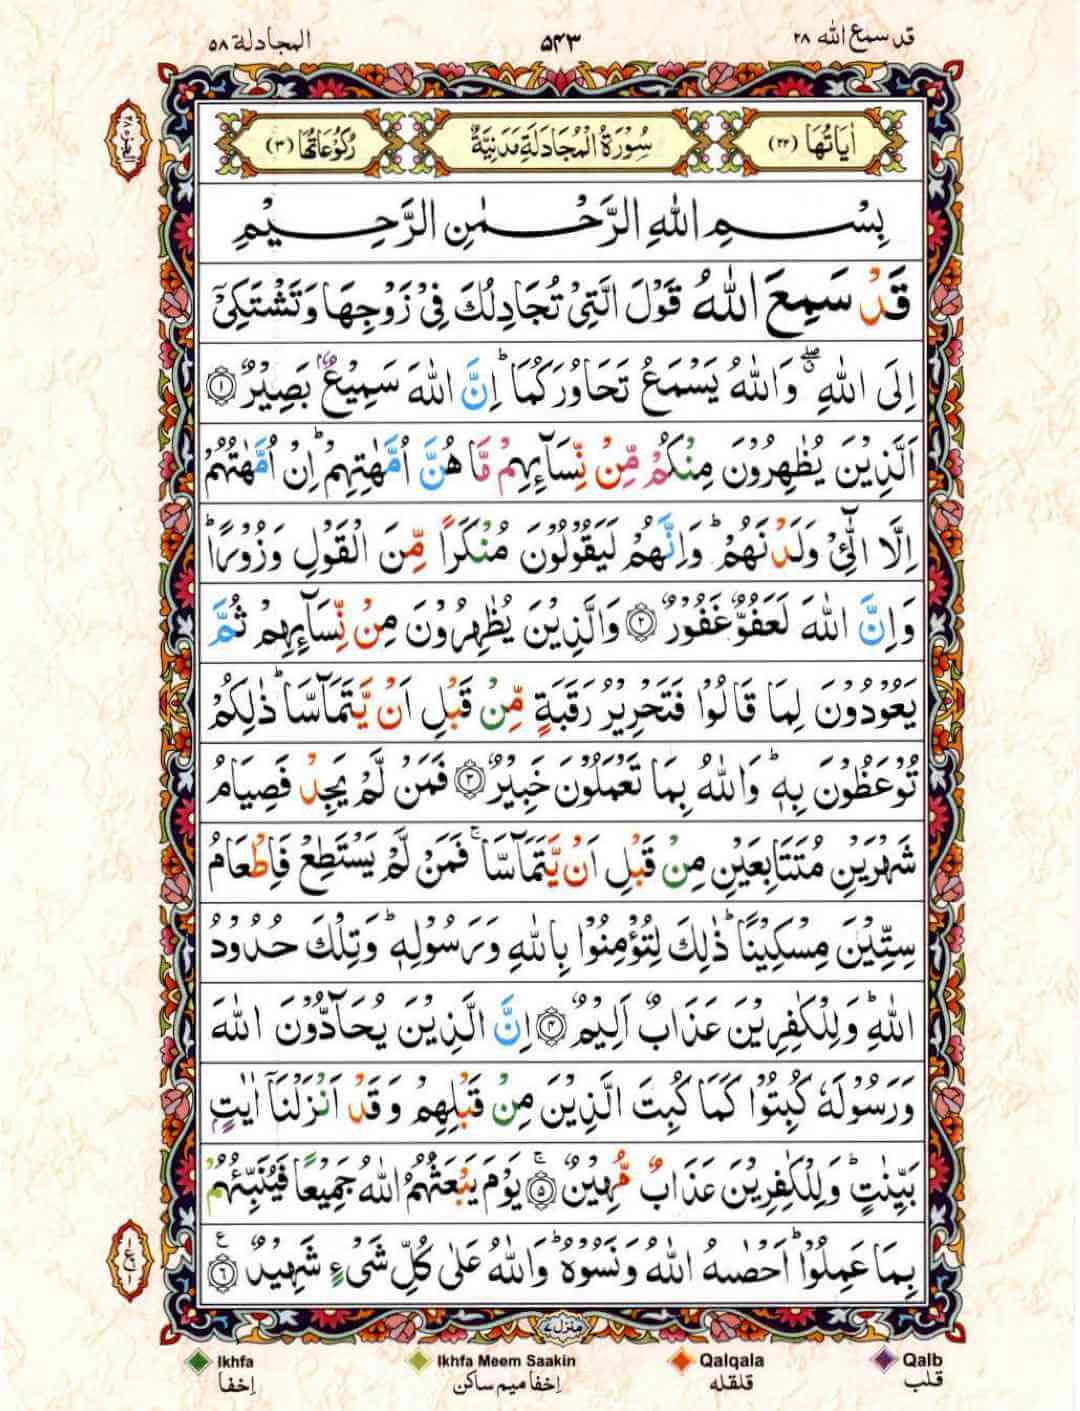 قد سمع الله ٢٨
۵۴۳
المجادلة ۵۸
اٰيَاتُهَا (٢٢)
سُوْرَةُ الْمُجَادَلَةِ مَدَنِيَّةٌ
رُكُوْعَاتُهَا (٣)
بِسْمِ اللّٰهِ الرَّحْمٰنِ الرَّحِيْمِ
قَدْ سَمِعَ اللّٰهُ قَوْلَ الَّتِيْ تُجَادِلُكَ فِيْ زَوْجِهَا وَتَشْتَكِيْٓ
اِلَى اللّٰهِ ۖ وَاللّٰهُ يَسْمَعُ تَحَاوُرَكُمَا ؕ اِنَّ اللّٰهَ سَمِيْعٌۢ بَصِيْرٌ ۝١
اَلَّذِيْنَ يُظٰهِرُوْنَ مِنْكُمْ مِّنْ نِّسَآئِهِمْ مَّا هُنَّ اُمَّهٰتِهِمْ ؕ اِنْ اُمَّهٰتُهُمْ
اِلَّا الّٰٓـِٔيْ وَلَدْنَهُمْ ؕ وَاِنَّهُمْ لَيَقُوْلُوْنَ مُنْكَرًا مِّنَ الْقَوْلِ وَزُوْرًا ؕ
وَاِنَّ اللّٰهَ لَعَفُوٌّ غَفُوْرٌ ۝٢ وَالَّذِيْنَ يُظٰهِرُوْنَ مِنْ نِّسَآئِهِمْ ثُمَّ
يَعُوْدُوْنَ لِمَا قَالُوْا فَتَحْرِيْرُ رَقَبَةٍ مِّنْ قَبْلِ اَنْ يَّتَمَآسَّا ؕ ذٰلِكُمْ
تُوْعَظُوْنَ بِهٖ ؕ وَاللّٰهُ بِمَا تَعْمَلُوْنَ خَبِيْرٌ ۝٣ فَمَنْ لَّمْ يَجِدْ فَصِيَامُ
شَهْرَيْنِ مُتَتَابِعَيْنِ مِنْ قَبْلِ اَنْ يَّتَمَآسَّا ۚ فَمَنْ لَّمْ يَسْتَطِعْ فَاِطْعَامُ
سِتِّيْنَ مِسْكِيْنًا ؕ ذٰلِكَ لِتُؤْمِنُوْا بِاللّٰهِ وَرَسُوْلِهٖ ؕ وَتِلْكَ حُدُوْدُ
اللّٰهِ ؕ وَلِلْكٰفِرِيْنَ عَذَابٌ اَلِيْمٌ ۝۴ اِنَّ الَّذِيْنَ يُحَآدُّوْنَ اللّٰهَ
وَرَسُوْلَهٗ كُبِتُوْا كَمَا كُبِتَ الَّذِيْنَ مِنْ قَبْلِهِمْ وَقَدْ اَنْزَلْنَآ اٰيٰتٍۢ
بَيِّنٰتٍ ؕ وَلِلْكٰفِرِيْنَ عَذَابٌ مُّهِيْنٌ ۝۵ ۚ يَوْمَ يَبْعَثُهُمُ اللّٰهُ جَمِيْعًا فَيُنَبِّئُهُمْ
بِمَا عَمِلُوْا ؕ اَحْصٰىهُ اللّٰهُ وَنَسُوْهُ ؕ وَاللّٰهُ عَلٰى كُلِّ شَيْءٍ شَهِيْدٌ ۝٦
منزل ٧
Ikhfa
اِخفا
Ikhfa Meem Saakin
اِخفا ميم ساكن
Qalqala
قلقله
Qalb
قلب